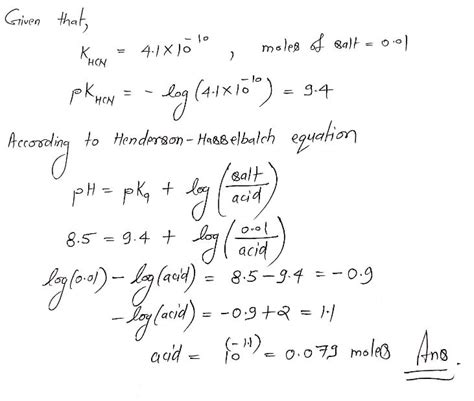 Given that,
K_HCN = 4.1×10^-10 , moles of salt = 0.01
pK_HCN = - log (4.1×10^-10) = 9.4
According to Henderson-Hasselbalch equation
pH = pKa + log (salt/acid)
8.5 = 9.4 + log (0.01/acid)
log(0.01) - log(acid) = 8.5-9.4 = -0.9
-log(acid) = -0.9+2 = 1.1
acid = 10^(-1.1) = 0.079 moles Ans.